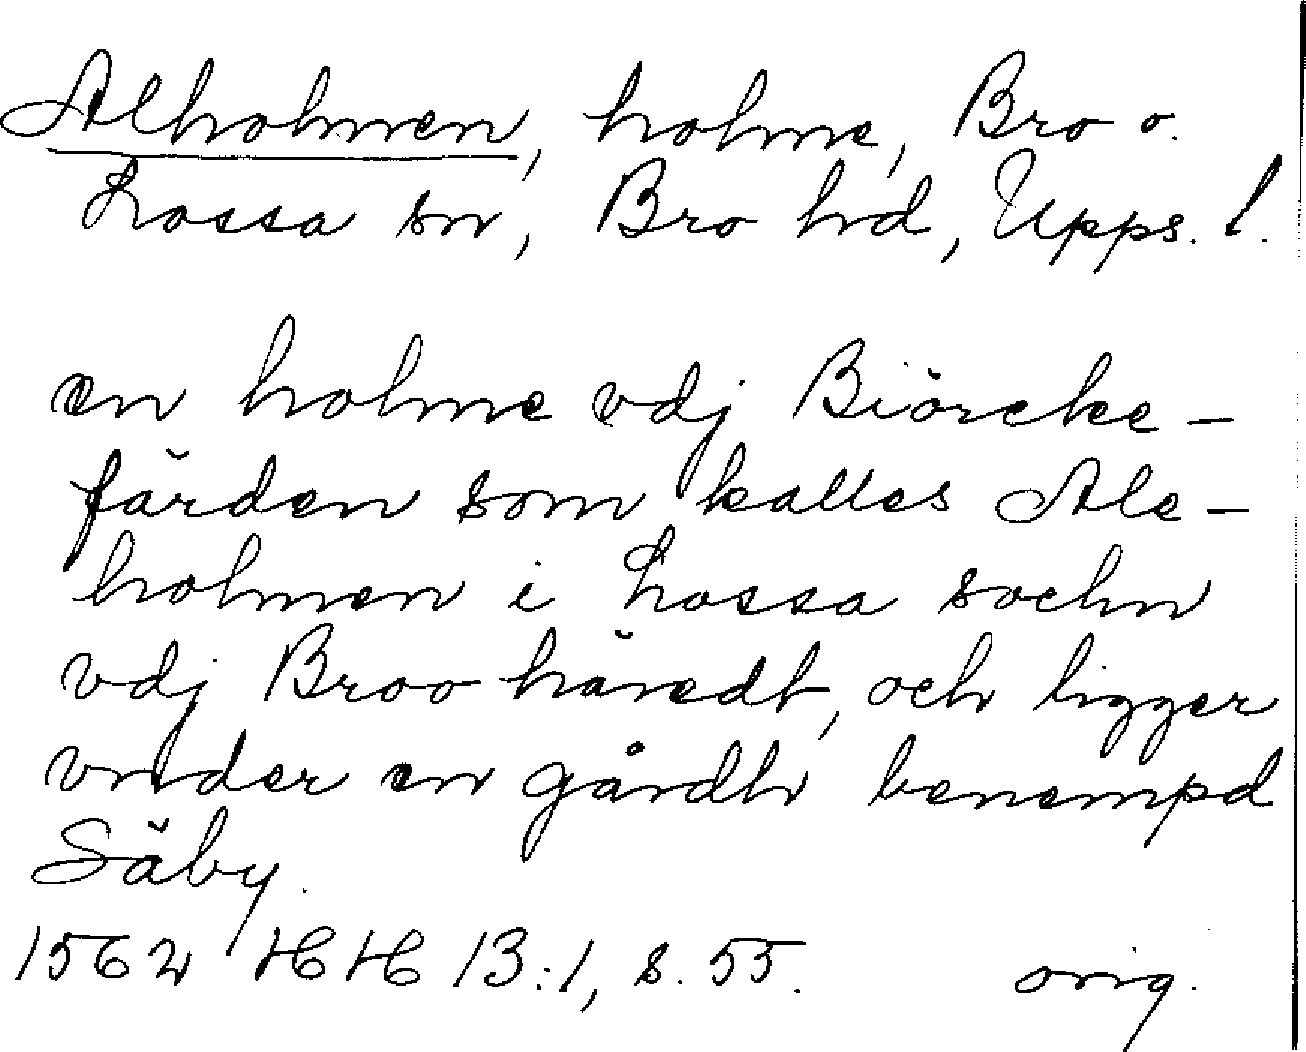 Alholmen, holme, Bro o.
Lossa sn, Bro hd, Upps. l.
en holme vdj Biörcke-
färden som kalles Ale-
holmen i Lossa sochn
vdj Broo häredt, och ligger
vnder en gårdh benempd
Säby.
1562 HH 13:1, s. 55. orig.